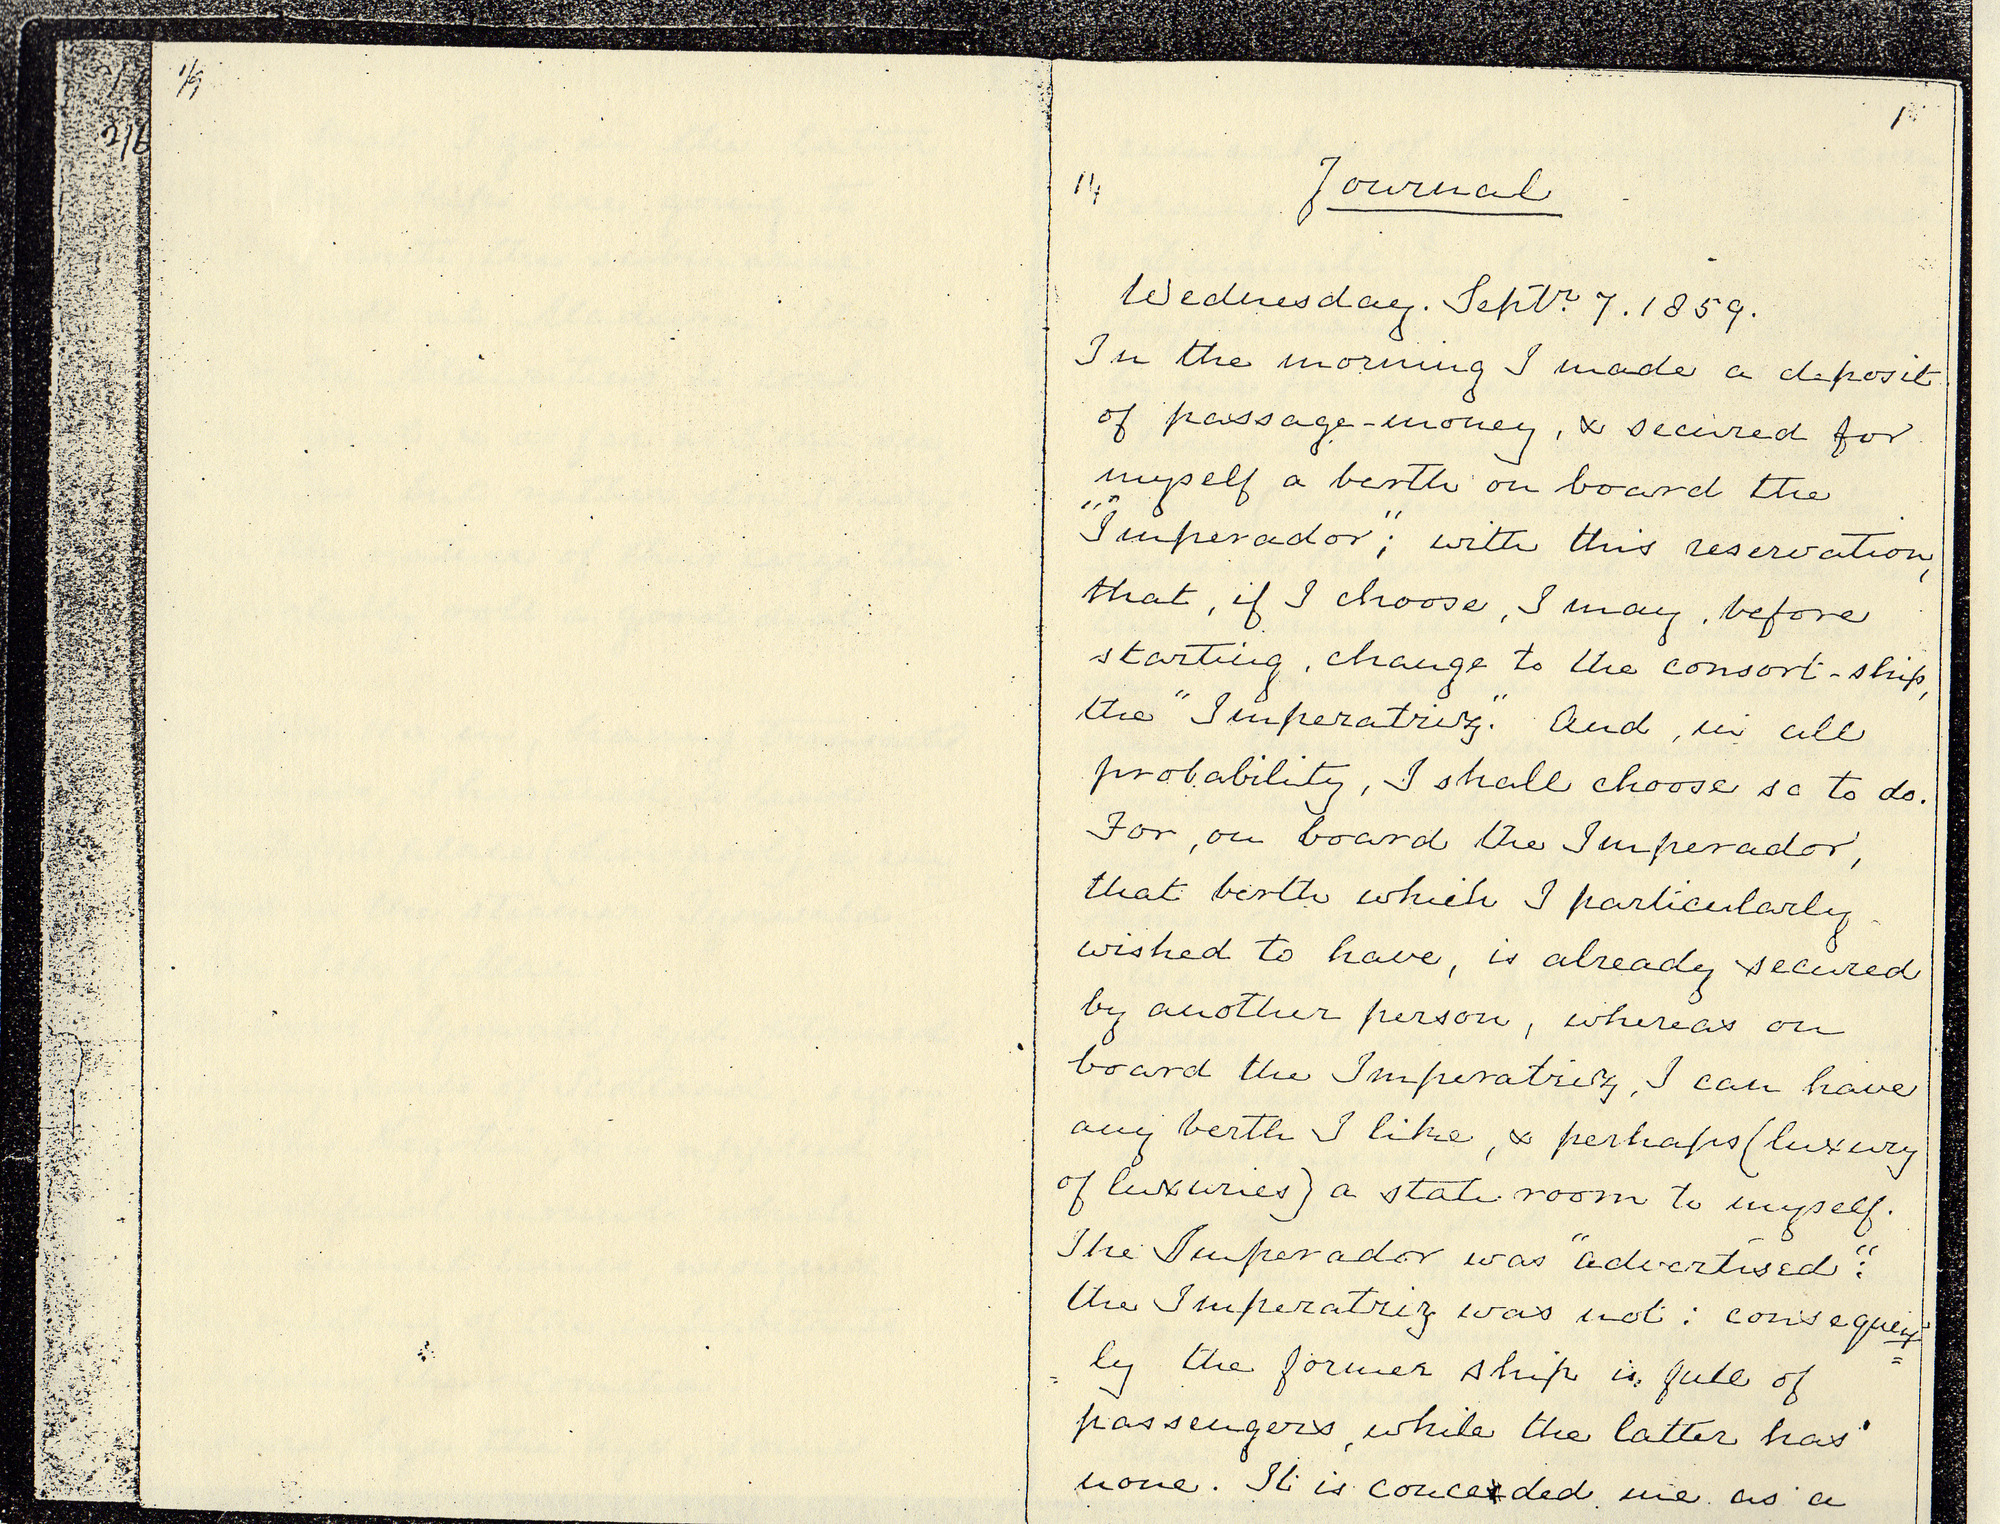 1/9
2/6
1
1/4
Journal
Wednesday. Septr. 7. 1859.
In the morning I made a deposit
of passage-money, & secured for
myself a berth on board the
"Imperador"; with this reservation,
that, if I choose, I may, before
starting, change to the consort-ship,
the "Imperatriz." And, in all
probability, I shall choose so to do.
For, on board the Imperador,
that berth which I particularly
wished to have, is already secured
by another person, whereas on
board the Imperatriz, I can have
any berth I like, & perhaps (luxury
of luxuries) a state room to myself.
The Imperador was "advertised":
the Imperatriz was not: consequent
=ly the former ship is full of
passengers, while the latter has
none. It is conceded me as a